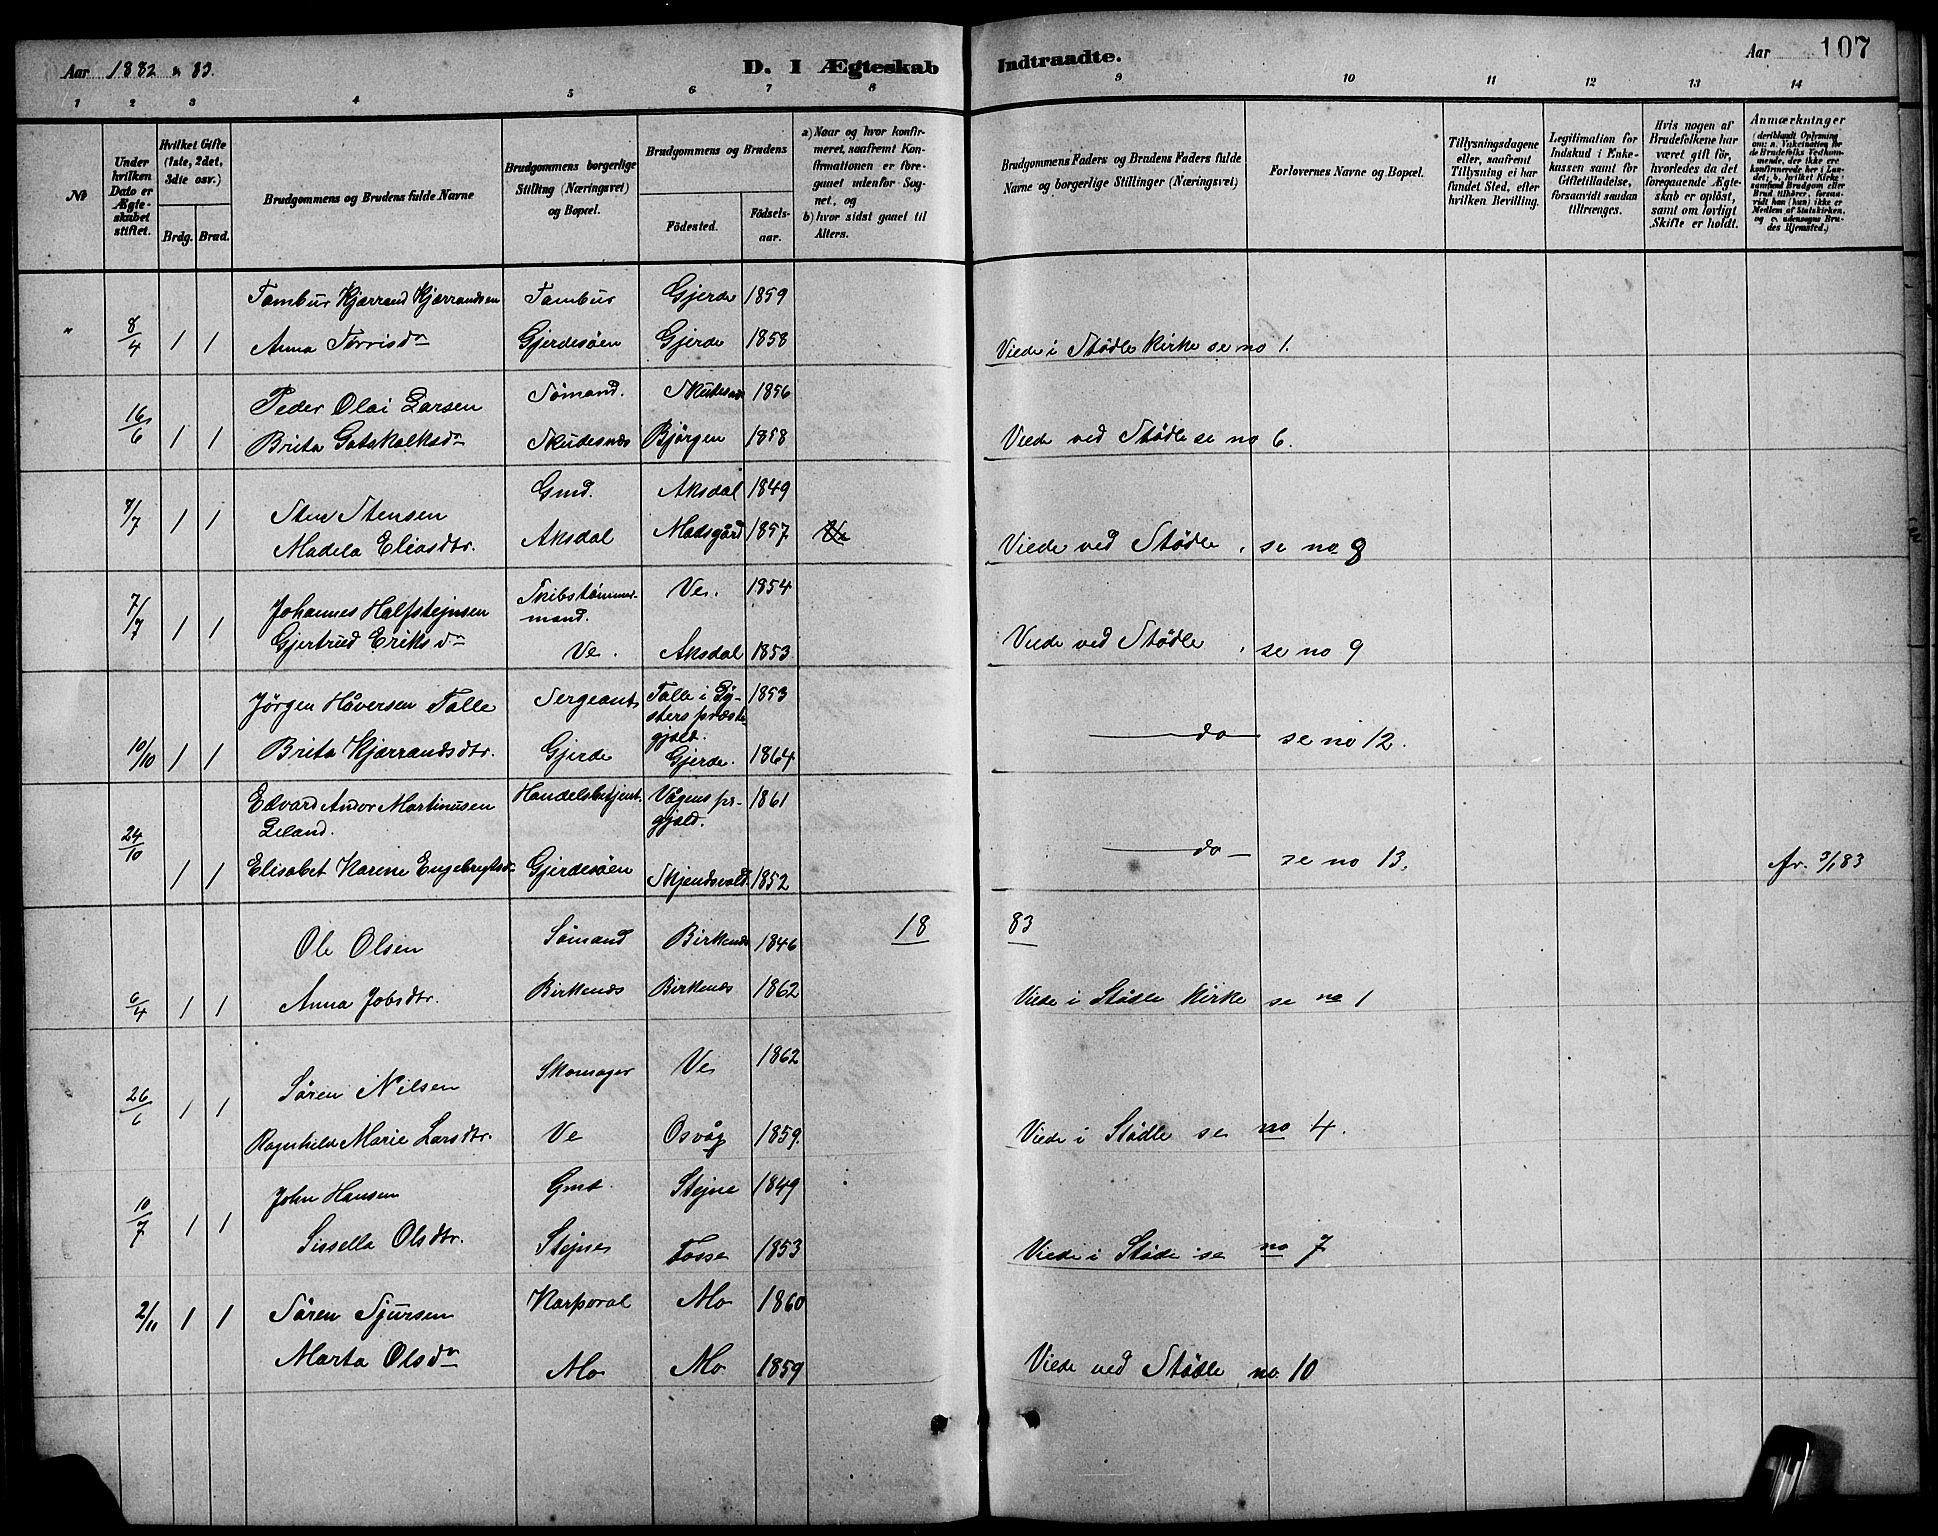 Aar 1882 & 83.
D. I Ægteskab Indtraadte.
Aar 107
1 2 3 4 5 6 7 8 9 10 11 12 13 14
№
Under hvilken Dato er Ægteskabet stiftet.
Hvilket Gifte (1ste, 2det, 3die osv.)
Brdg. Brud.
Brudgommens og Brudens fulde Navne
Brudgommens borgerlige Stilling (Næringsvei) og Bopæl.
Brudgommens og Brudens
Fødested.
Fødsels-aar.
a) Naar og hvor konfirmeret, saafremt Konfirmationen er foregaaet udenfor Sognet, og
b) hvor sidst gaaet til Alters.
Brudgommens Faders og Brudens Faders fulde Navne og borgerlige Stillinger (Næringsvei)
Forlovernes Navne og Bopæl.
Tillysningsdagene eller, saafremt Tillysning ei har fundet Sted, efter hvilken Bevilling.
Legitimation for Indskud i Enkekassen samt for Giftetilladelse, forsaavidt saadan tiltrænges.
Hvis nogen af Brudefolkene har været gift før, hvorledes da det foregaaende Ægteskab er opløst, samt om lovligt Skifte er holdt.
Anmærkninger
(deriblandt Oplysning om: a. Vakcination for de Brudefolks Vedkommende, der ikke ere konfirmerede her i Landet; b. hvilket Kirkesamfund Brudgom eller Brud tilhører, forsaavidt han (hun) ikke er Medlem af Statskirken, og c. udensogns Brudes Hjemsted.)
Tambur Kjærrand Kjærrandsen Tambur Gjerde 1859
" 8/4 1 1 Anna Torrisdr Gjerdesøen Gjerde 1858 Viede i Stødle Kirke se no 1.
Peder Olai Larsen Sømand. Skudesnæs 1856
16/6 1 1 Brita Gotskalksdr Skudesnæs Bjørgen 1858 Viede ved Stødle se no 6.
Gmd. Aksdal 1849
7/7 1 1 Sten Stensen
Madela Eliasdtr. Aksdal Madsgård 1857 Viede ved Stødle, se no 8
7/7 1 1 Johannes Halfstejnsen Skibstømmermand. Ve. 1854
Gjertrud Eriksdr Ve. Aksdal 1853 Viede ved Stødle, se no 9
Jørgen Håversen Talle Sergeant Talle i Lysters præstegjæld. 1853
10/10 1 1 Brita Kjærrandsdtr. Gjerde Gjerde. 1864 do se no 12.
Edvard Andor Martinusen Handelsbetjent. Vågens pr-gjæld. 1861
Leland.
24/10 1 1 Elisabet Karine Engebregtsdr Gjerdesøen Skjendsvold 1852 do se no 13. fr. 3/1 83
1883
Ole Olsen Sømand Birkenæs 1846
6/4 1 1 Anna Jobsdtr. Birkenæs Birkenæs 1862 Viede i Stødle Kirke se no 1
Søren Nilsen Skomager Ve 1862
26/6 1 1 Ragnhild Marie Larsdtr. Ve Osvåg 1859. Viede i Stødle se no 4.
John Hansen Gmd Stejne 1849
10/7 1 1 Sissella Olsdtr. Stejne Fosse 1853 Viede i Stødle se no 7
2/11 1 1 Søren Sjursen Korporal Mo 1860
Marta Olsdr Mo Mo 1859 Viede ved Stødle, no 10